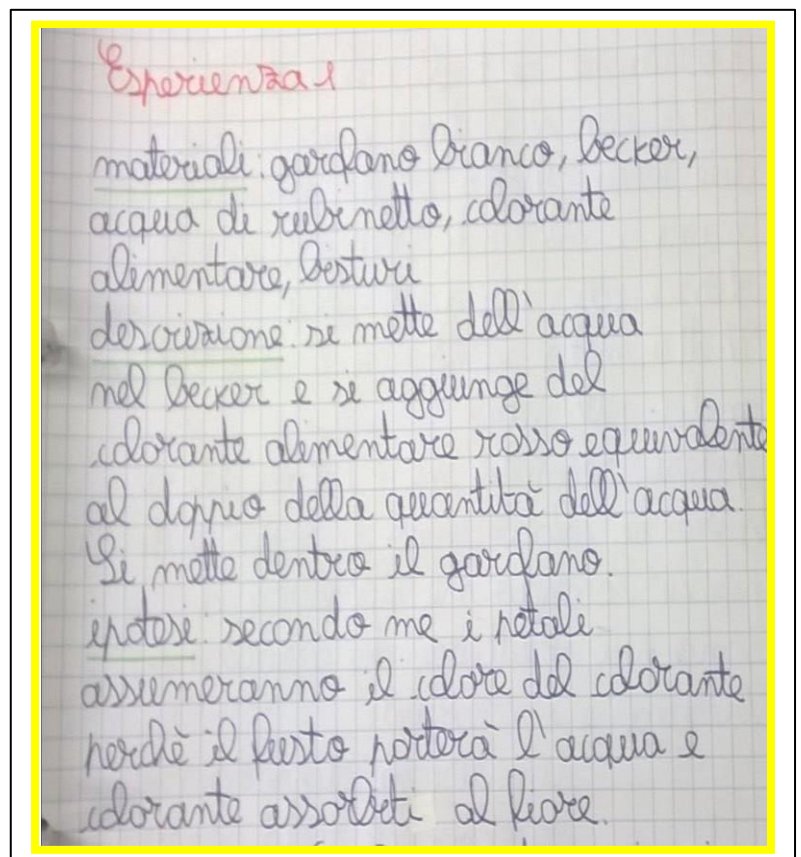 Esperienza 1
materiali: garofano bianco, becker,
acqua di rubinetto, colorante
alimentare, bisturi
descrizione: si mette dell'acqua
nel becker e si aggiunge del
colorante alimentare rosso equivalente
al doppio della quantità dell'acqua.
Si mette dentro il garofano.
ipotesi: secondo me i petali
assumeranno il colore del colorante
perchè il fusto porterà l'acqua e
colorante assorbiti al fiore.